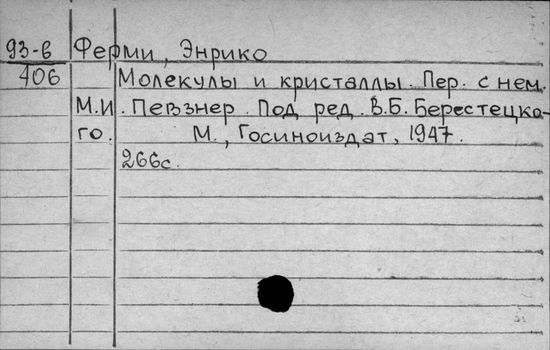 93-6 Ферми, Энрико
406 Молекулы и кристаллы. Пер. с нем.
М.И. Певзнер. Под ред. В.Б. Берестецко-
го. М., Госиноиздат, 1947.
266с.